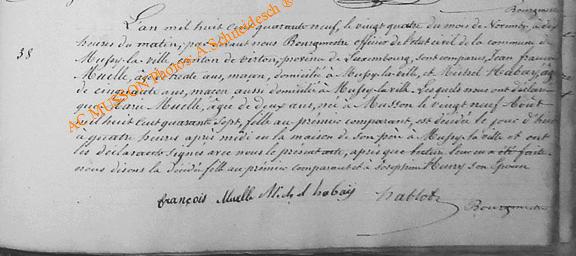 Bourgmestre
38
L'an mil huit cent quarante neuf, le vingt quatre du mois de Novembre, à dix
heures du matin, par devant nous Bourgmestre officier de l'état civil de la commune de
Mussy-la-ville, canton de virton, province de Luxembourg, sont comparus, Jean françois
Muelle, âgé de trente ans, maçon, domicilié à Mussy-la-ville, et Michel Habay, âgé
de cinquante ans, maçon aussi domicilié à Mussy-la-Ville. Lesquels nous ont déclaré
que Marie Muelle, âgée de deux ans, née à Musson le vingt neuf Août
mil huit cent quarante sept, fille au premier comparant, est décédée le jour d'hier
à quatre heures après midi en la maison de son père à Mussy-la-ville et ont
les déclarants signé avec nous le présent acte, après que lecture leur en a été faite
nous disons la décédée fille au premier comparant et à Joséphine Henry son épouse
françois Muelle Michel habay hablot
Bourgmestre
AC MUSSON Photos: A.Schleidesch ®